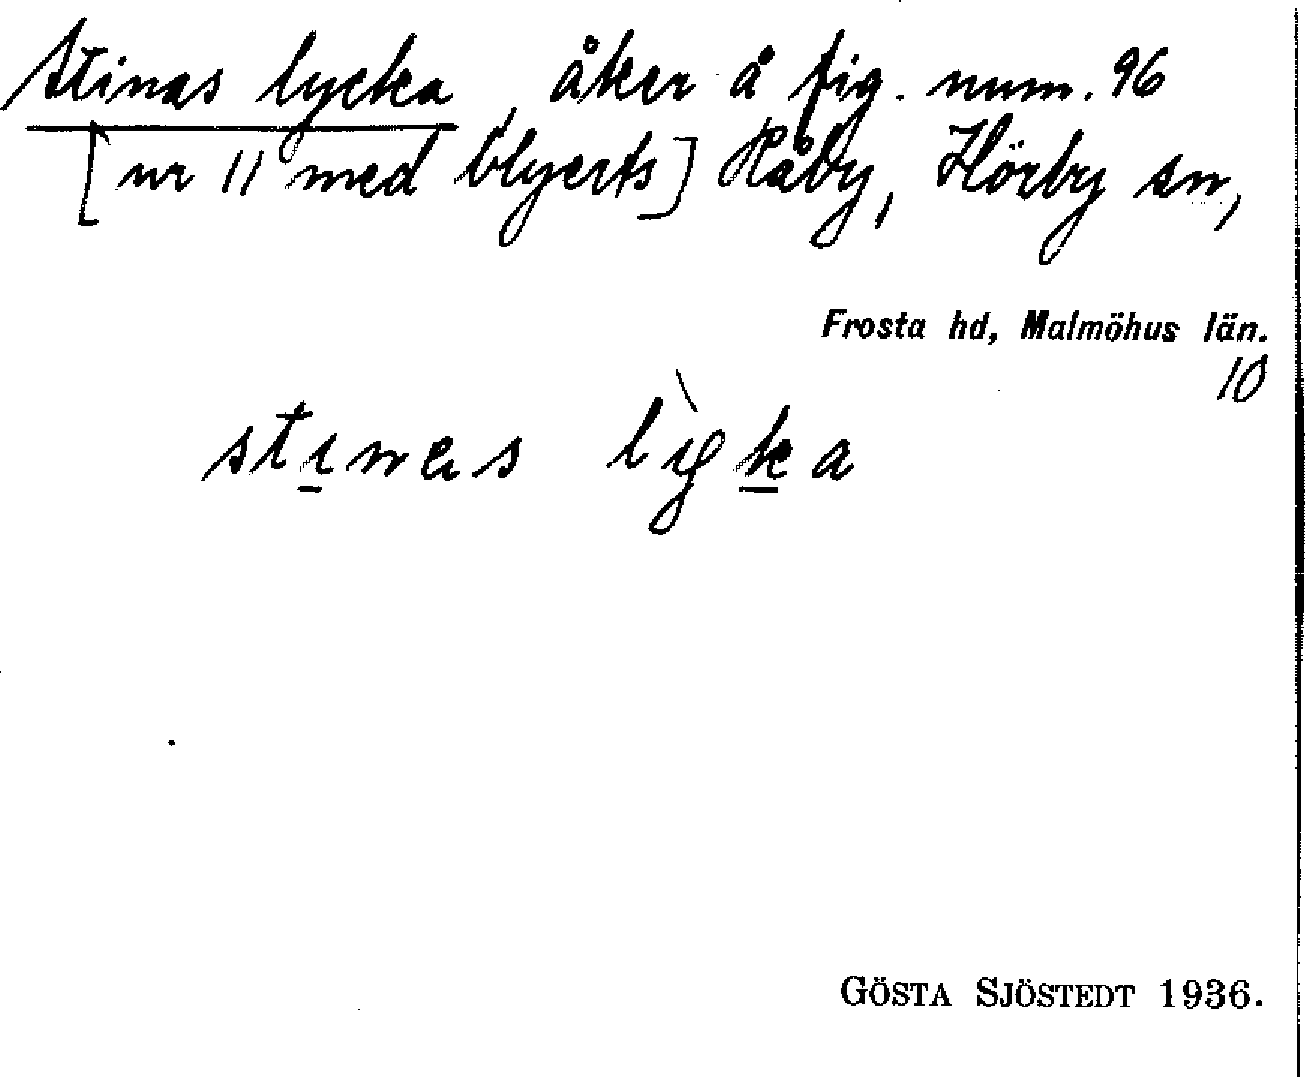 Stinas lycka, åker å fig. num. 96
[nr 11 med blyerts] Råby, Hörby sn,
Frosta hd, Malmöhus län.
10
stɩnas lỳka
GÖSTA SJÖSTEDT 1936.